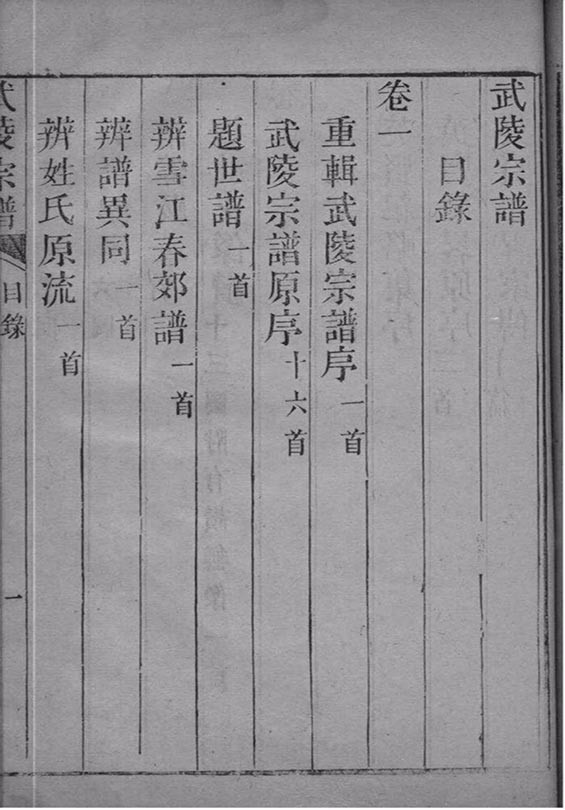 武陵宗譜
目錄
卷一
重輯武陵宗譜序一首
武陵宗譜原序十六首
題世譜一首
辨雪江春郊譜一首
辨譜異同一首
辨姓氏原流一首
武陵宗譜 目錄 一